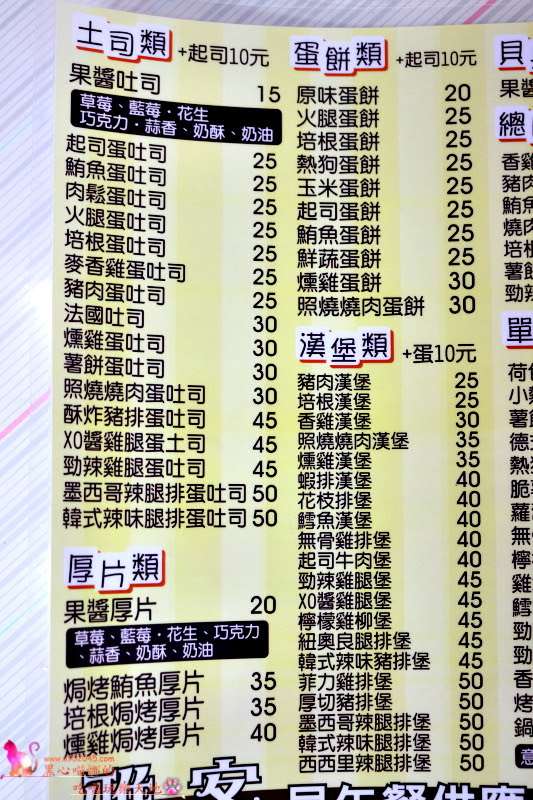 土司類 +起司10元
果醬吐司 15
草莓、藍莓・花生
巧克力・蒜香、奶酥、奶油
起司蛋吐司 25
鮪魚蛋吐司 25
肉鬆蛋吐司 25
火腿蛋吐司 25
培根蛋吐司 25
麥香雞蛋吐司 25
豬肉蛋吐司 25
法國吐司 30
燻雞蛋吐司 30
薯餅蛋吐司 30
照燒燒肉蛋吐司 30
酥炸豬排蛋吐司 45
XO醬雞腿蛋土司 45
勁辣雞腿蛋吐司 45
墨西哥辣腿排蛋吐司 50
韓式辣味腿排蛋吐司 50
厚片類
果醬厚片 20
草莓、藍莓・花生、巧克力
、蒜香、奶酥、奶油
焗烤鮪魚厚片 35
培根焗烤厚片 35
燻雞焗烤厚片 40
蛋餅類 +起司10元
原味蛋餅 20
火腿蛋餅 25
培根蛋餅 25
熱狗蛋餅 25
玉米蛋餅 25
起司蛋餅 25
鮪魚蛋餅 25
鮮蔬蛋餅 25
燻雞蛋餅 30
照燒燒肉蛋餅 30
漢堡類 +蛋10元
豬肉漢堡 25
培根漢堡 25
香雞漢堡 30
照燒燒肉漢堡 35
燻雞漢堡 35
蝦排漢堡 40
花枝排堡 40
鱈魚漢堡 40
無骨雞排堡 40
起司牛肉堡 40
勁辣雞腿堡 45
XO醬雞腿堡 45
檸檬雞柳堡 45
紐奧良腿排堡 45
韓式辣味豬排堡 45
菲力雞排堡 50
厚切豬排堡 50
墨西哥辣腿排堡 50
韓式辣味腿排堡 50
西西里辣腿排堡 50
果醬
總
香雞
豬肉
鮪魚
燒肉
培根
薯餅
勁辣
單
荷包
小
薯
德式
熱
脆
蘿
無
檸
雞
鱈
勁
勁
香
烤
鍋
黑心喵娜的
吃喝玩樂天地